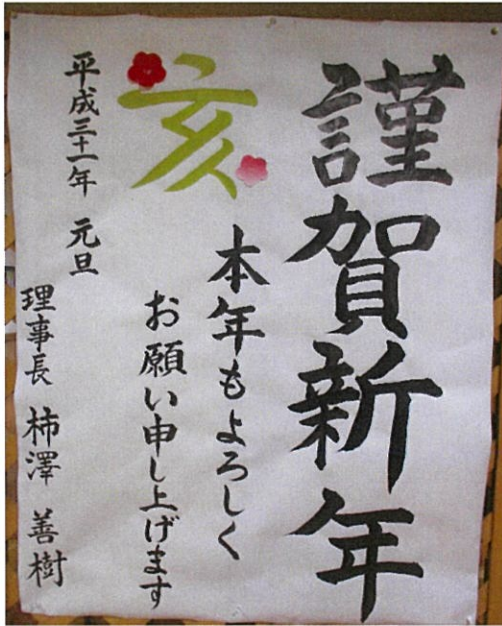 謹賀新年
本年もよろしく
お願い申し上げます
亥
平成三十一年 元旦
理事長 柿澤 善樹